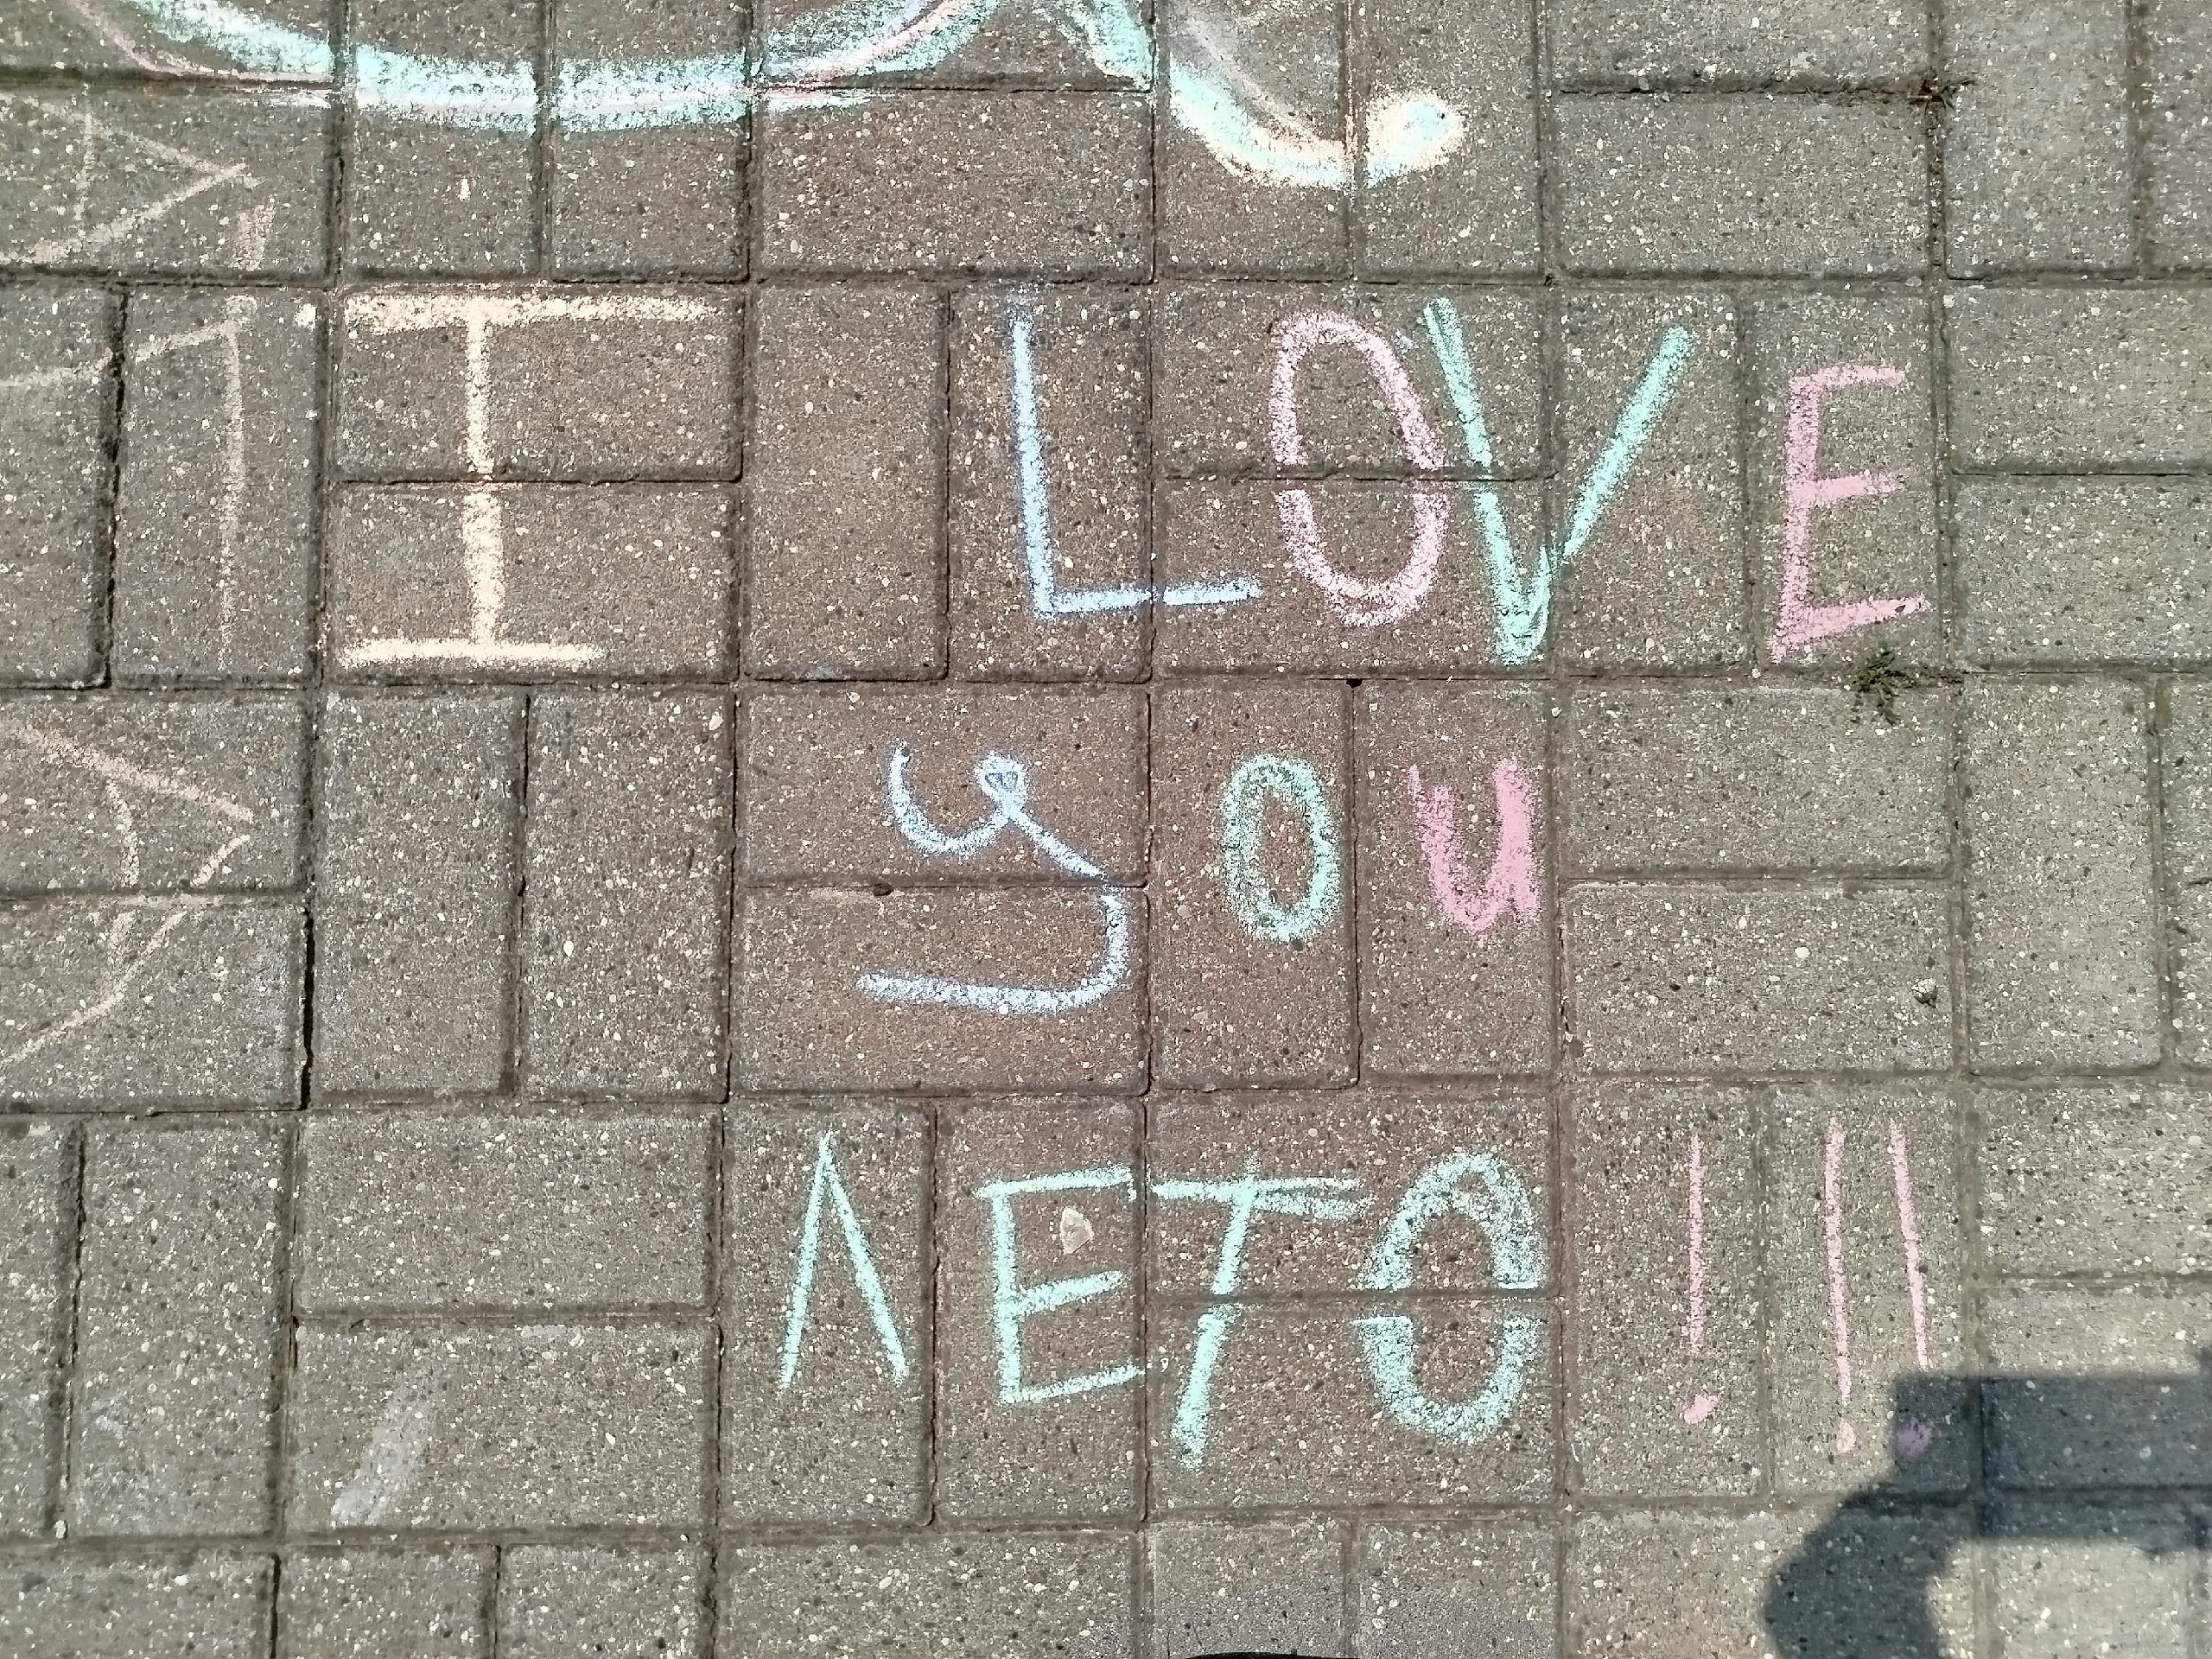 I LOVE
you
ЛЕТО!!!